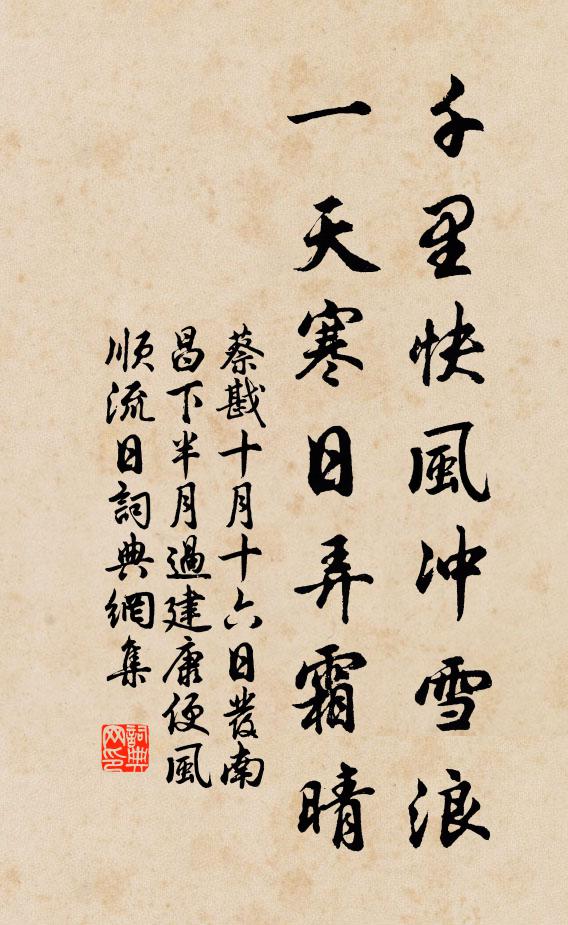 千里快風冲雪浪
一天寒日弄霜晴
蔡戡十月十六日發南
昌下半月過建康便風
順流日詞典網集
詞典
网印